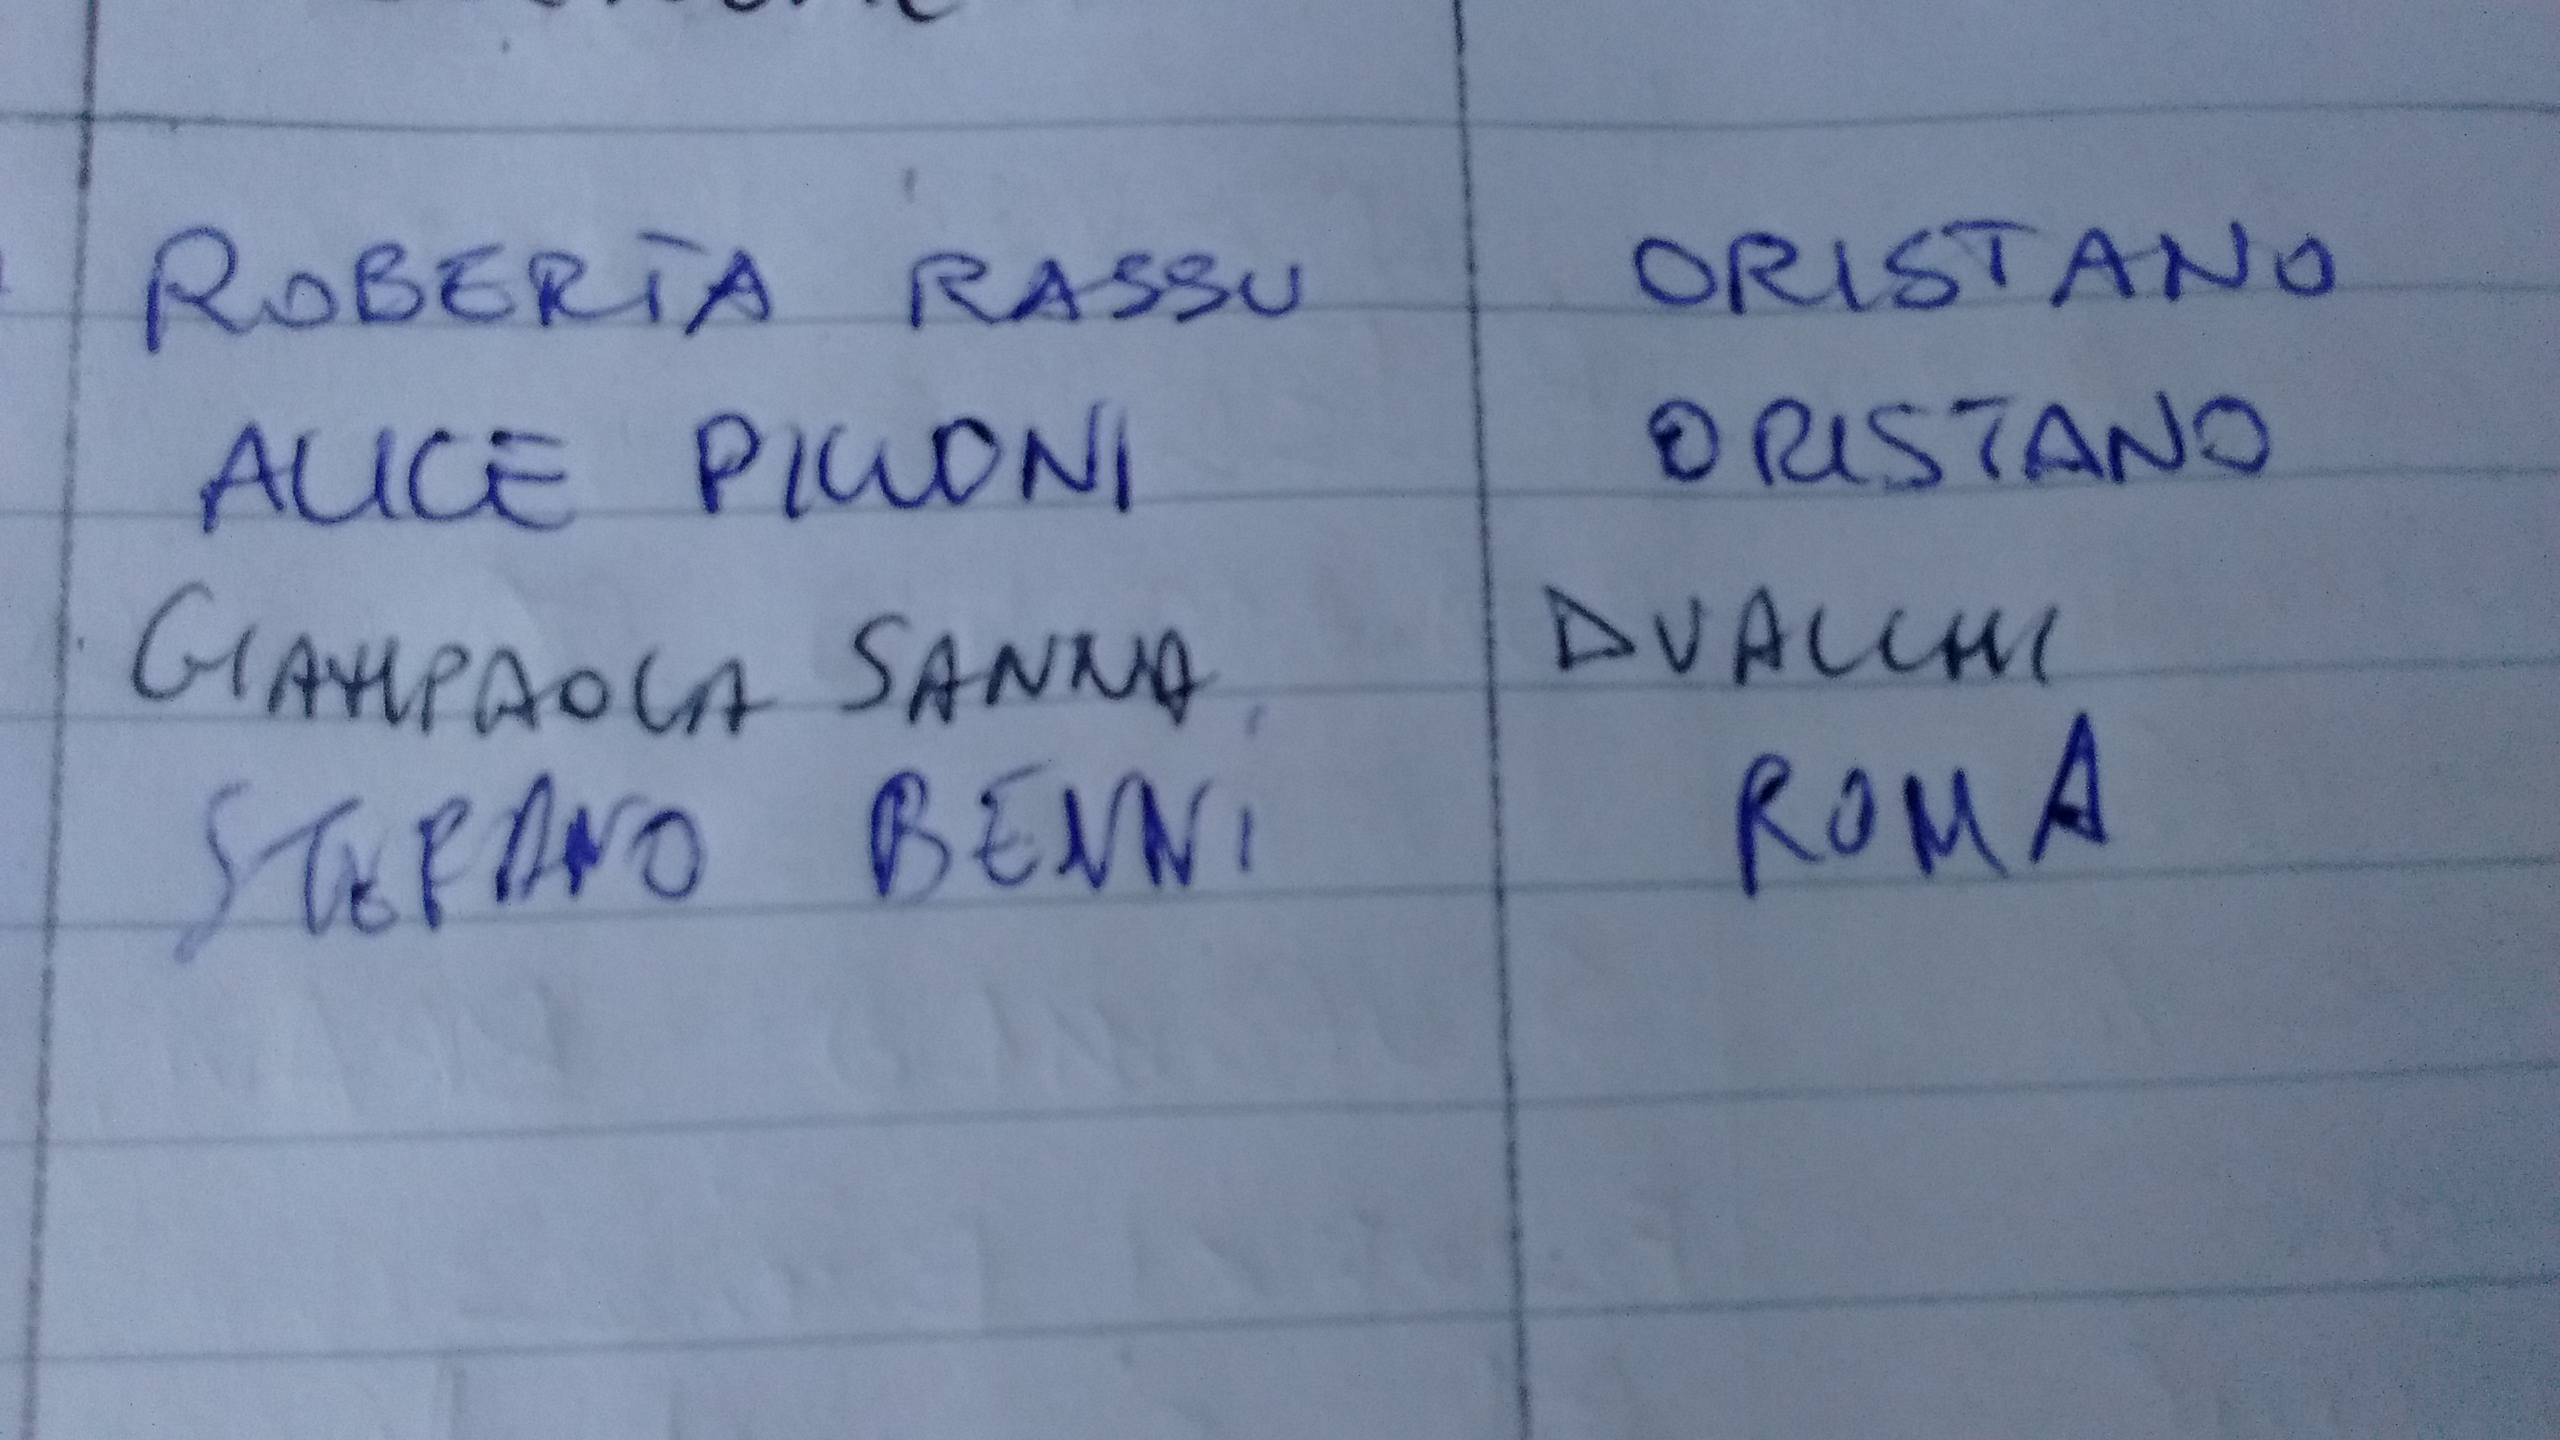 ROBERTA RASSU ORISTANO
ALICE PILLONI ORISTANO
GIAMPAOLA SANNA DUALCHI
STEFANO BENNI ROMA